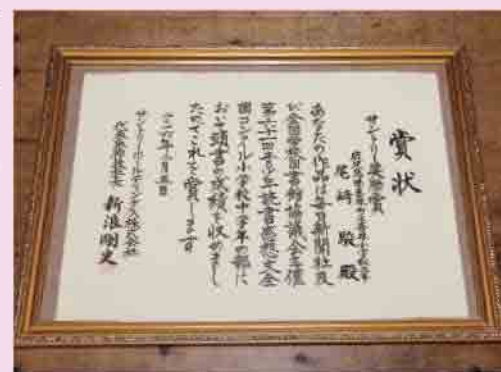 賞状
サントリー奨励賞
尾崎 駿 殿
あなたの作品は毎日新聞社及
び全国学校図書館協議会主催
第六十一回青少年読書感想文全
国コンクール小学校中学年の部に
おいて頭書の成績を収めまし
たのでこれを賞します
サントリーホールディングス株式会社
代表取締役社長 新浪剛史